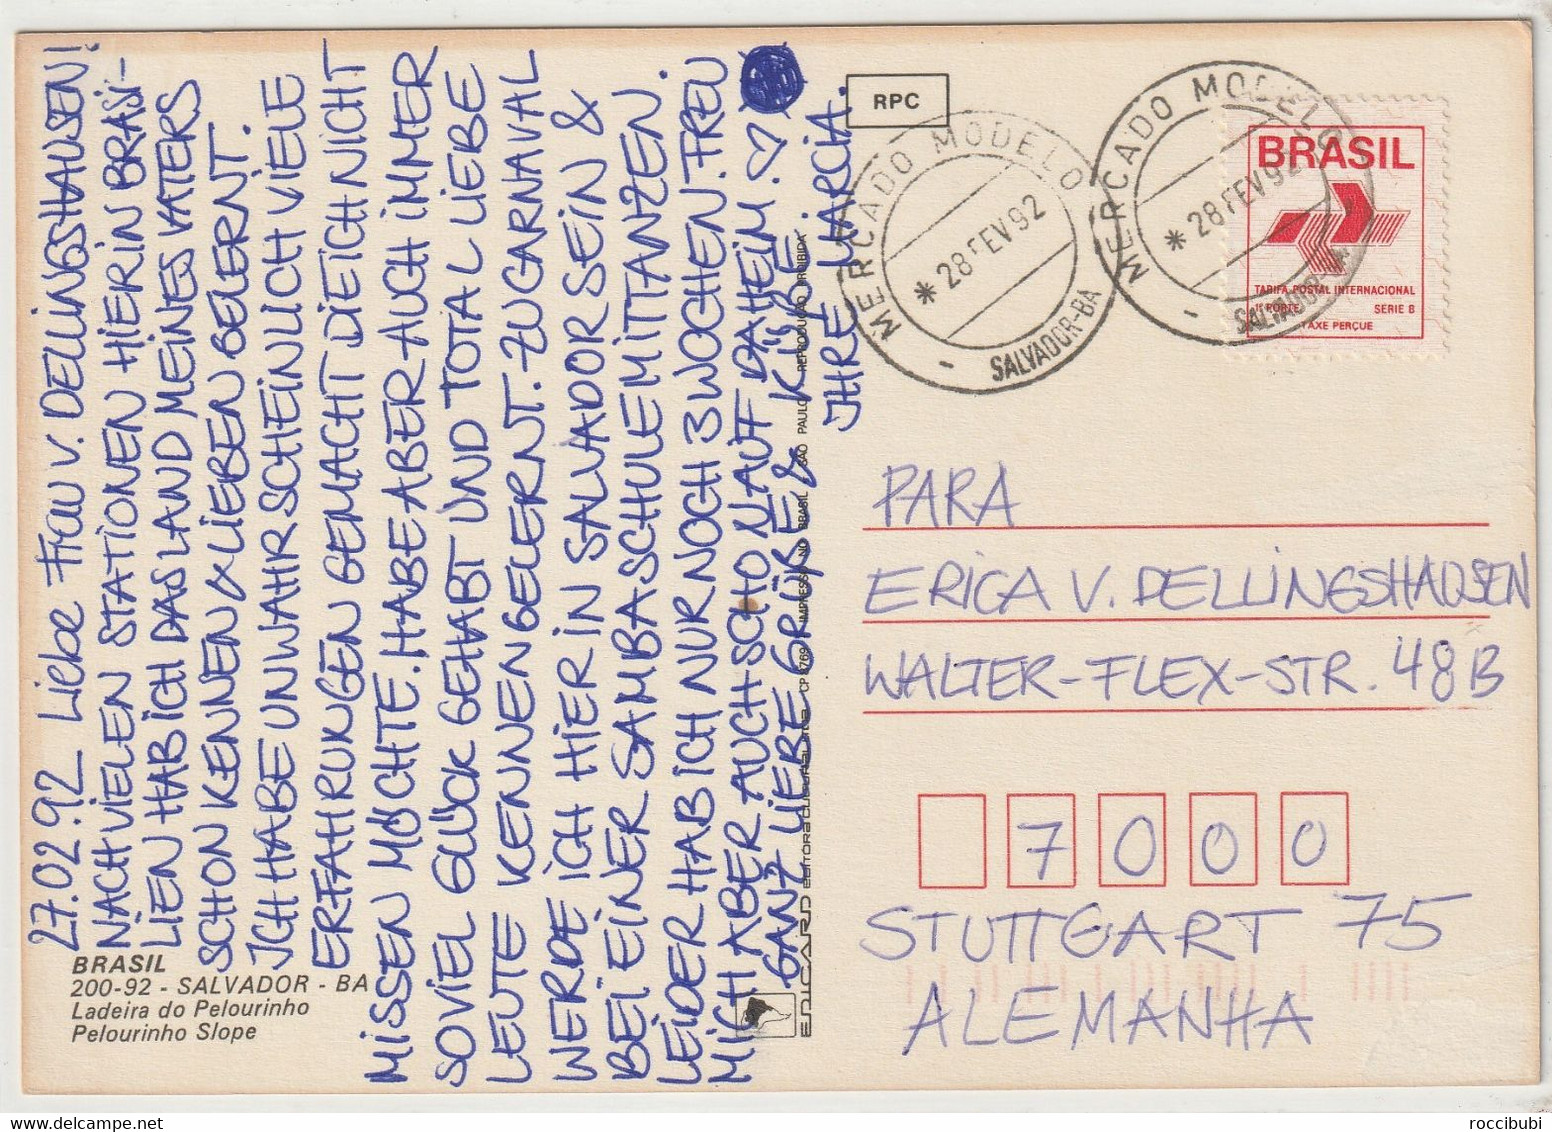 27.02.92 LIEBE FRAU V. DELLINGSHAUSEN!
NACH VIELEN STATIONEN HIER IN BRASI-
LIEN HAB ICH DAS LAND MEINES VATERS
SCHON KENNEN & LIEBEN GELERNT.
ICH HABE UNWAHRSCHEINLICH VIELE
ERFAHRUNGEN GEMACHT DIE ICH NICHT
MISSEN MÖCHTE. HABE ABER AUCH IMMER
SOVIEL GLÜCK GEHABT UND TOTAL LIEBE
LEUTE KENNENGELERNT. ZU GARNAVAL
WERDE ICH HIER IN SALVADOR SEIN &
BEI EINER SAMBASCHULE MITTANZEN.
LEIDER HAB ICH NUR NOCH 3 WOCHEN. FREU
MICH ABER AUCH SCHO N'AUF DAHEIM. ♡
GANZ LIEBE GRÜßE & KÜßE
IHRE MARCIA.
BRASIL
200-92 - SALVADOR - BA
Ladeira do Pelourinho
Pelourinho Slope
EDICARD EDITORA CULTURAL Ltda - CP 8769 IMPRESSO NO BRASIL SÃO PAULO REPRODUÇÃO PROIBIDA
RPC
MERCADO MODELO
* 28 FEV 92
SALVADOR-BA
MERCADO MODELO
* 28 FEV 92
SALVADOR
BRASIL
TARIFA POSTAL INTERNACIONAL
1º PORTE SÉRIE B
TAXE PERÇUE
PARA
ERICA V. DELLINGSHAUSEN
WALTER-FLEX-STR. 48B
7 0 0 0
STUTTGART 75
ALEMANHA
roccibubi